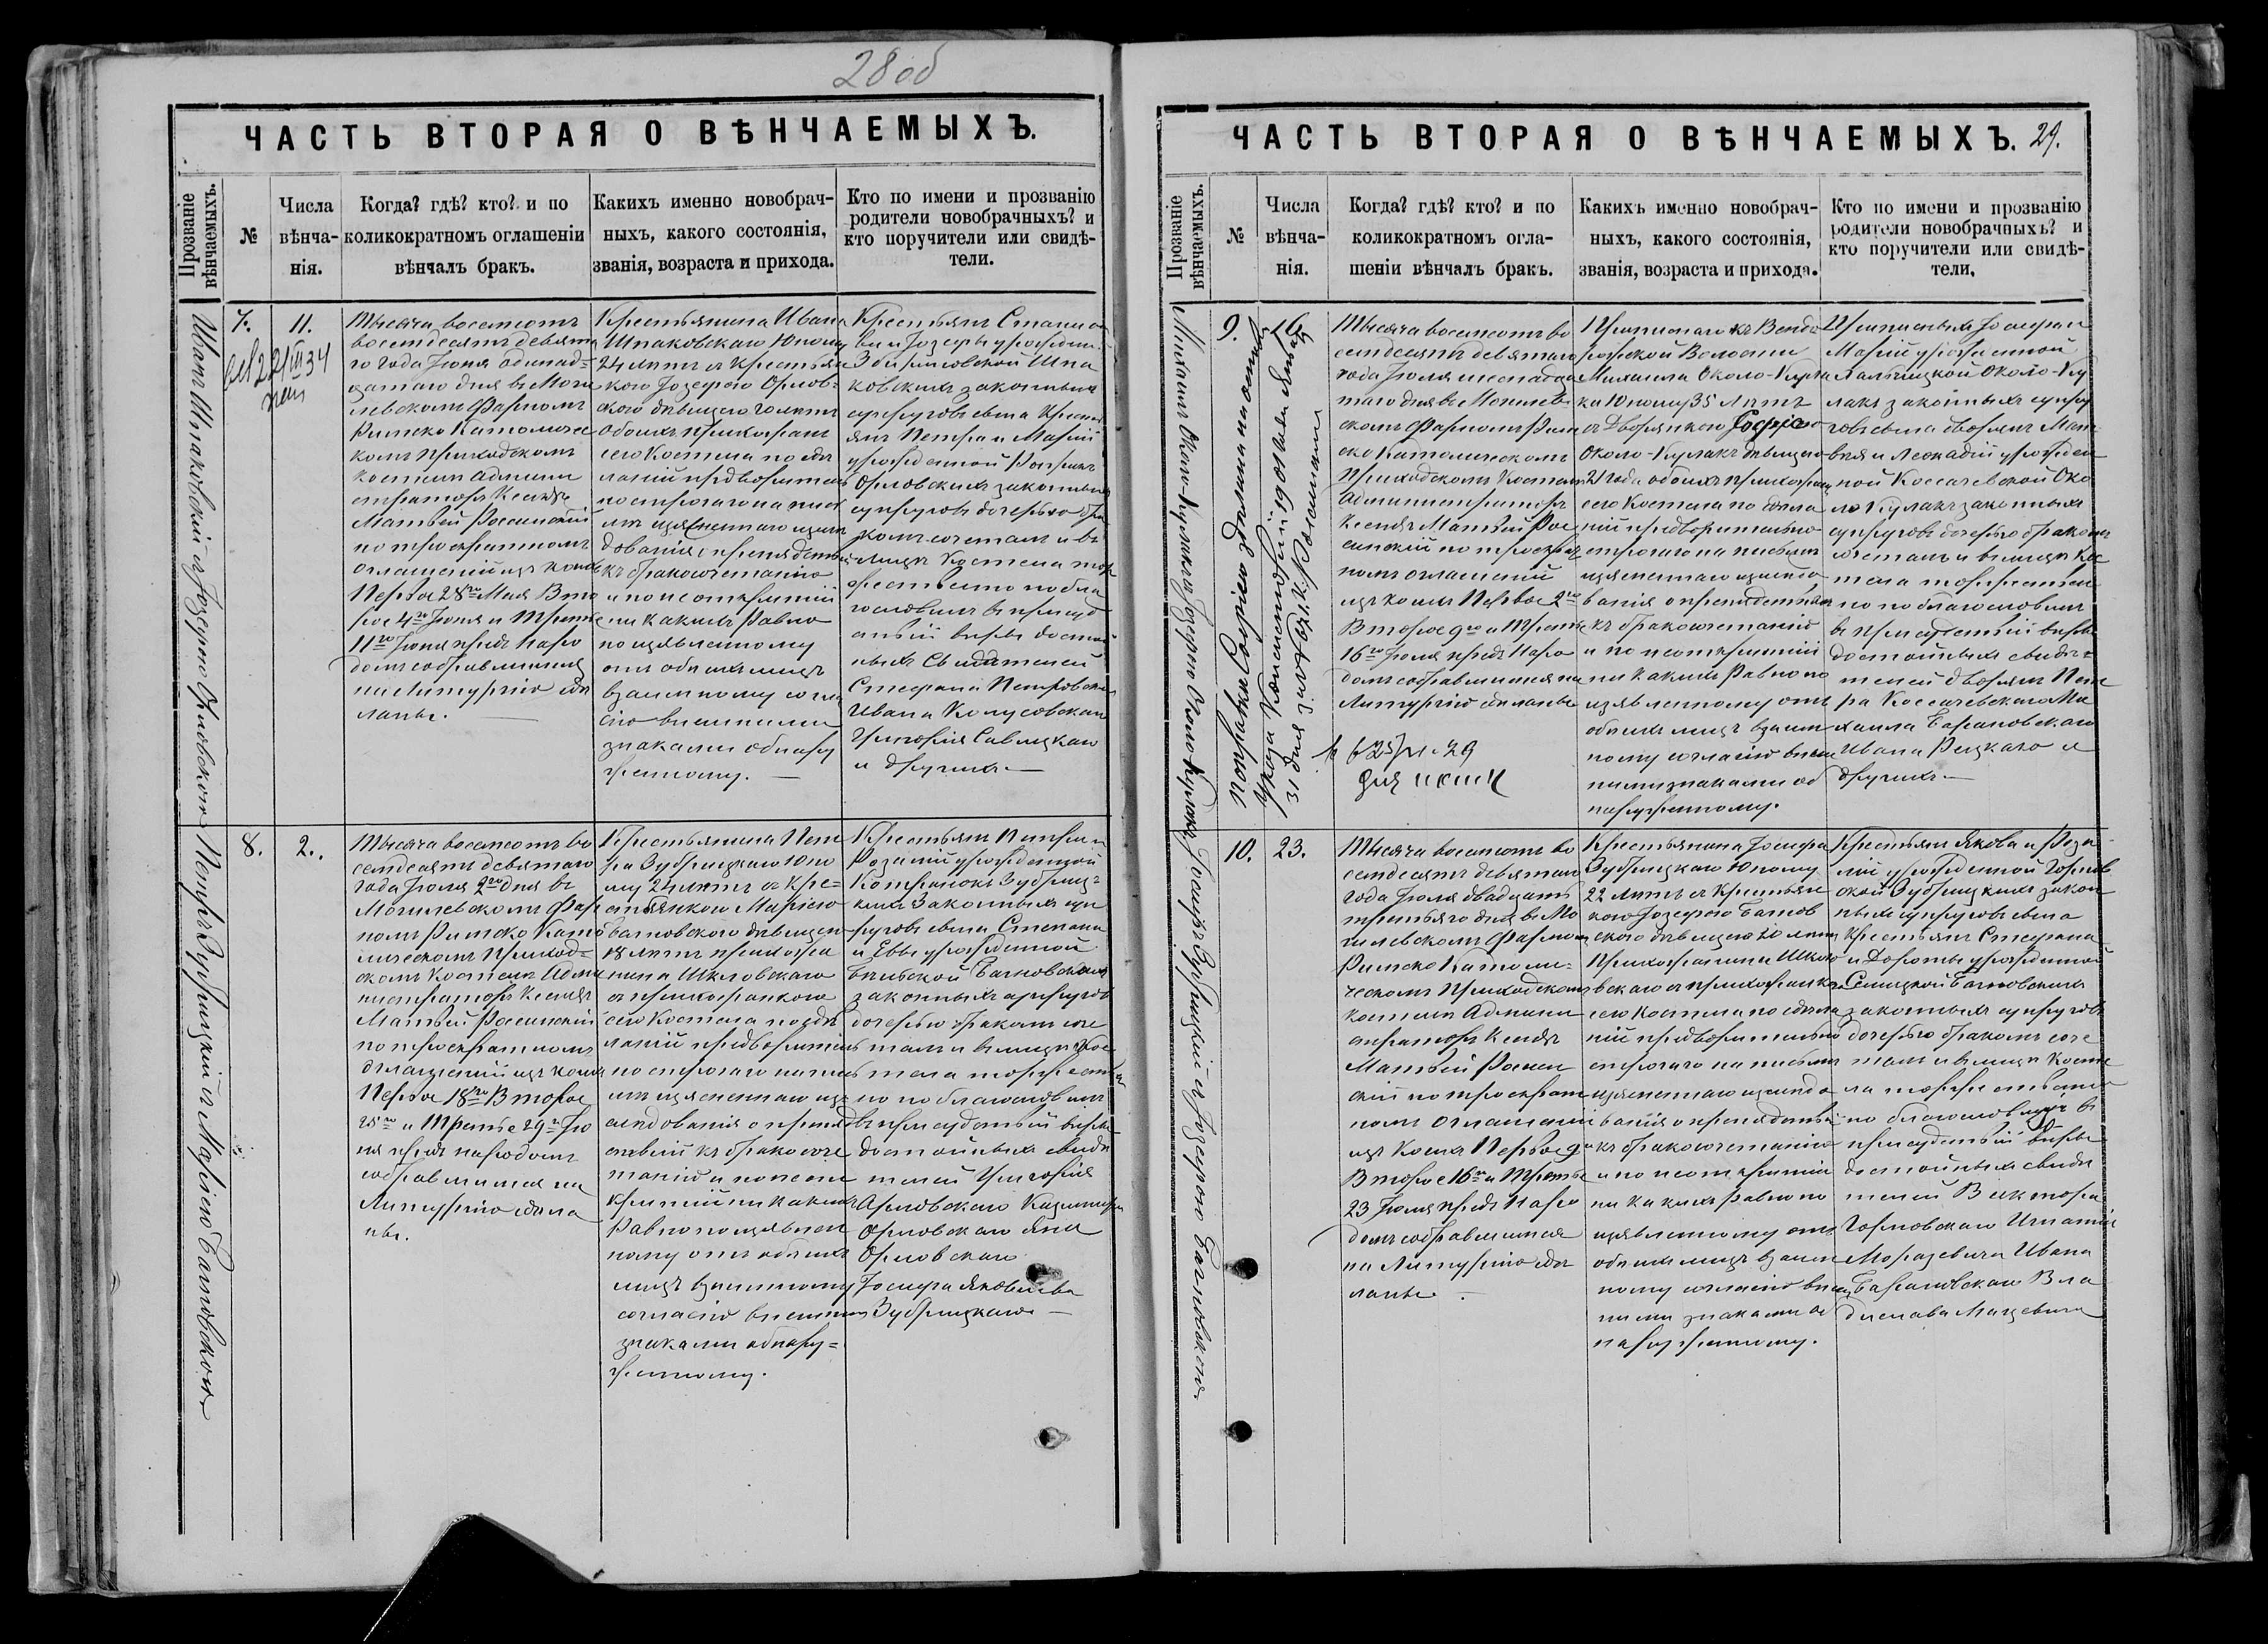 28 об
ЧАСТЬ ВТОРАЯ О ВѢНЧАЕМЫХЪ.
Прозваніе вѣнчаемыхъ.
№
Числа вѣнча-нія.
Когда? гдѣ? кто? и по
коликократномъ оглашеніи
вѣнчалъ бракъ.
Какихъ именно новобрач-
ныхъ, какого состоянія,
званія, возраста и прихода.
Кто по имени и прозванію
родители новобрачныхъ? и
кто поручители или свидѣ-
тели.
Иванъ Шпаковскій съ Іозефою Орловскою
7.
11.
Тысяча восемсотъ
восемдесятъ девята
го года Іюня одинад=
цатаго дня въ Моги
левскомъ Фарномъ
Римско Католичес
комъ приходскомъ
костелѣ Админи
страторъ Ксендзъ
Матвѣй Росинскій
по троекратномъ
оглашеніи изъ коихъ
Первое 28го Мая Вто
рое 4го Іюня и Третье
11го Іюня предъ наро
домъ собравшимся
на Литургію сдѣ
ланы.
Крестьянина Ивана
Шпаковскаго Юношу
24 лѣтъ съ крестьян
кою Іозефою Орлов=
скою дѣвицею
обоихъ прихожан
сего Костела по сдѣ
ланіи предварительн
но строгаго на пись
мѣ изъясненнаго изслѣ
дованія о препядствіи
къ бракосочетанію
и по неоткрытіи
ни какихъ равно
по изъявленному
отъ обоихъ лицъ
взаимному согла
сію внѣшними
знаками обнару
женному.
Крестьянъ Станисла
ва и Іозефы урожден
Шпа
ковскихъ законныхъ
супруговъ сына крестья
янъ Петра и Маріи
урожденной
Орловскихъ законныхъ
супруговъ дочерью бра
комъ сочеталъ и въ
лицѣ Костела тор
жественно побла
гословилъ въ присуд
ствіи вѣры достой
ныхъ Свидѣтелей
Стефана Петровскаго
Ивана Колусовскаго
Григорія Савицкаго
и другихъ.
Петръ Зубрицкій съ Маріею Батовскою
8.
2.
Тысяча восемсотъ во
семдесятъ девятаго
года Іюля 2го дня въ
Могилевскомъ Фар
номъ Римско Като
лическомъ приход=
скомъ костелѣ Адми
нистраторъ Ксендзъ
Матвѣй Росинскій
по троекратномъ
оглашеніи изъ коихъ
Первое 18го Второе
25го и Третье 29го Ію
ня предъ народомъ
собравшимся на
Литургію сдѣла
ны.
Крестьянина Пет
ра Зубрицкаго Юно
шу 24 лѣтъ съ Кре=
стьянкою Маріею
Батовскою дѣвицею
18 лѣтъ прихожа
нина Шкловскаго
съ прихожанкою
сего Костела по сдѣ
ланіи предварительн
но строгаго на пись
мѣ изъясненнаго из
слѣдованія о препя
дствіи къ бракосоче
танію и по неот
крытіи ни какихъ
равно по изъявлен
ному отъ обоихъ
лицъ взаимному
согласію внѣшними
знаками обнару=
женному.
Крестьянъ Петра и
Розаліи урожденной
Зубриц=
кихъ законныхъ суп
руговъ сына Степана
и Евы урожденной
Батовскихъ
законныхъ супруговъ
дочерью бракомъ соче
талъ и въ лицѣ Кос
тела торжествен
но поблагословилъ
въ присудствіи вѣры
достойныхъ свидѣ
телей Григорія
Орловскаго Казимира
Орловскаго Яна
Орловскаго
Іосифа Яковлева
Зубрицкаго
ЧАСТЬ ВТОРАЯ О ВѢНЧАЕМЫХЪ. 29.
Прозваніе вѣнчаемыхъ.
№
Числа вѣнча-нія.
Когда? гдѣ? кто? и по
коликократномъ огла-
шеніи вѣнчалъ бракъ.
Какихъ именно новобрач-
ныхъ, какого состоянія,
званія, возраста и прихода.
Кто по имени и прозванію
родители новобрачныхъ? и
кто поручители или свидѣ-
тели.
Михаилъ Около-Кулакъ съ Іозефою Около-Кулакъ
9.
16.
Поправка Софіею сдѣлана на основ
Указа Консисторіи 1901 года Января
31 дня за № 621. К.
Тысяча восемсотъ во
семдесятъ девятаго
года Іюля шестнадца
таго дня въ Могилев=
скомъ Фарномъ Рим
ско Католическомъ
Приходскомъ Костелѣ
Администраторъ
Ксендзъ Матвѣй Рос
синскій по троекрат
номъ оглашеніи
изъ коихъ Первое 2го
Второе 9го и Третье
16го Іюля предъ Наро
домъ собравшимся на
Литургію сдѣланы
Михаила Около-Кула
ка Юношу 35 Лѣтъ
съ Дворянкою Софіею
Около-Кулакъ дѣвицею
21 года обоихъ прихожан
сего Костела по сдѣла
ніи предварительно
строгаго на письмѣ
изъясненнаго изслѣдо
ванія о препядствіи
къ бракосочетанію
и по неоткрытіи
ни какихъ равно по
изъявленному отъ
обоихъ лицъ взаим
ному согласію внѣш
ними знаками об
наруженному.
Приписныхъ Іосифа и
Маріи урожденной
Около-Ку
лакъ законныхъ супру
говъ сына дворянъ Мат
вѣя и Леокадіи урожден
ной Коссачевской Око
ло Кулакъ законныхъ
супруговъ дочерью бракомъ
сочеталъ и въ лицѣ Кос
тела торжествен
но поблагословилъ
въ присудствіи вѣры
достойныхъ свидѣ=
телей дворянъ Пет
ра Коссачевскаго Ми
хаила Барановскаго
Ивана Рецкаго и
другихъ.
Іосифъ Зубрицкій съ Іозефою Батовскою
10.
23.
Тысяча восемсотъ во
семдесятъ девятаго
года Іюля двадцать
третьяго дня въ Мо
гилевскомъ Фарномъ
Римско Католи=
ческомъ Приходскомъ
костелѣ Админи
страторъ Ксендзъ
Матвѣй Росин
скій по троекрат
номъ оглашеніи
изъ коихъ Первое 9го
Второе 16го и Третье
23 Іюля предъ Наро
домъ собравшимся
на Литургію сдѣ
ланы.
Крестьянина Іосифа
Зубрицкаго Юношу
22 лѣтъ съ Крестьян
кою Іозефою Батов
скою дѣвицею 20 лѣтъ
Прихожанина Шкло
вскаго съ прихожанкою
сего Костела по сдѣла
ніи предварительно
строгаго на письмѣ
изъясненнаго изслѣдо
ванія о препядствіи
къ бракосочетанію
и по неоткрытіи
ни какихъ равно по
изъявленному отъ
обоихъ лицъ взаим
ному согласію внѣш
ними знаками об
наруженному.
Крестьянъ Якова и Роза
ліи урожденной Горнов
ской Зубрицкихъ закон
ныхъ супруговъ сына
Крестьянъ Стефана
и Дороты урожденной
Батовскихъ
законныхъ супруговъ
дочерью бракомъ соче
талъ и въ лицѣ Косте
ла торжественно
поблагословилъ въ
присудствіи вѣры
достойныхъ свидѣ
телей Виктора
Горновскаго Игнатія
Морозевича Ивана
Барановскаго Вла
дислава Мацевича